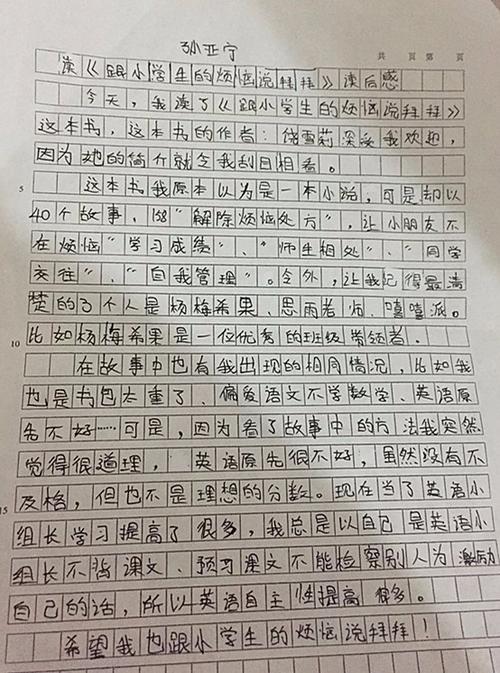 孙亚宁
共 页 第 页
读《跟小学生的烦恼说拜拜》读后感
今天，我读了《跟小学生的烦恼说拜拜》
这本书，这本书的作者：伍雪莉深受我欢迎，
因为她的简介就令我刮目相看。
5
这本书，我原本以为是一本小说，可是却以
40个故事、158"解除烦恼处方"，让小朋友不
在烦恼"学习成绩"、"师生相处"、"同学
交往"、"自我管理"。令外，让我记得最清
楚的了个人是杨梅希果、思雨老师、嘻嘻派。
10
比如杨梅希果是一位优秀的班级带领者。
在故事中也有我出现的相同情况，比如我
也是书包太重了、偏爱语文不学数学、英语原
先不好……可是，因为看了故事中的方法我突然
觉得很道理，英语原先很不好，虽然没有不
15
及格，但也不是理想的分数。现在当了英语小
组长学习提高了很多，我总是以自己是英语小
组长不背课文、预习课文不能检察别人为激励
自己的话，所以英语自主性提高很多。
希望我也跟小学生的烦恼说拜拜！